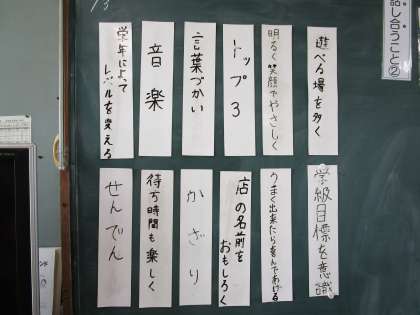 話し合うこと②
遊べる場を多く
明るく笑顔でやさしく
トップ3
言葉づかい
音楽
学年によって
レベルを変えろ
学級目標を意識
うまく出来たら喜んであげる
店の名前を
おもしろく
かざり
待ち時間も楽しく
せんでん